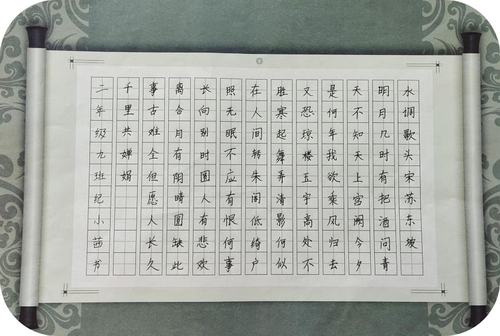 水调歌头宋苏东坡
明月几时有把酒问青
天不知天上宫阙今夕
是何年我欲乘风归去
又恐琼楼玉宇高处不
胜寒起舞弄清影何似
在人间转朱阁低绮户
照无眠不应有恨何事
长向别时圆人有悲欢
离合月有阴晴圆缺此
事古难全但愿人长久
千里共婵娟
二年级九班纪小茜书